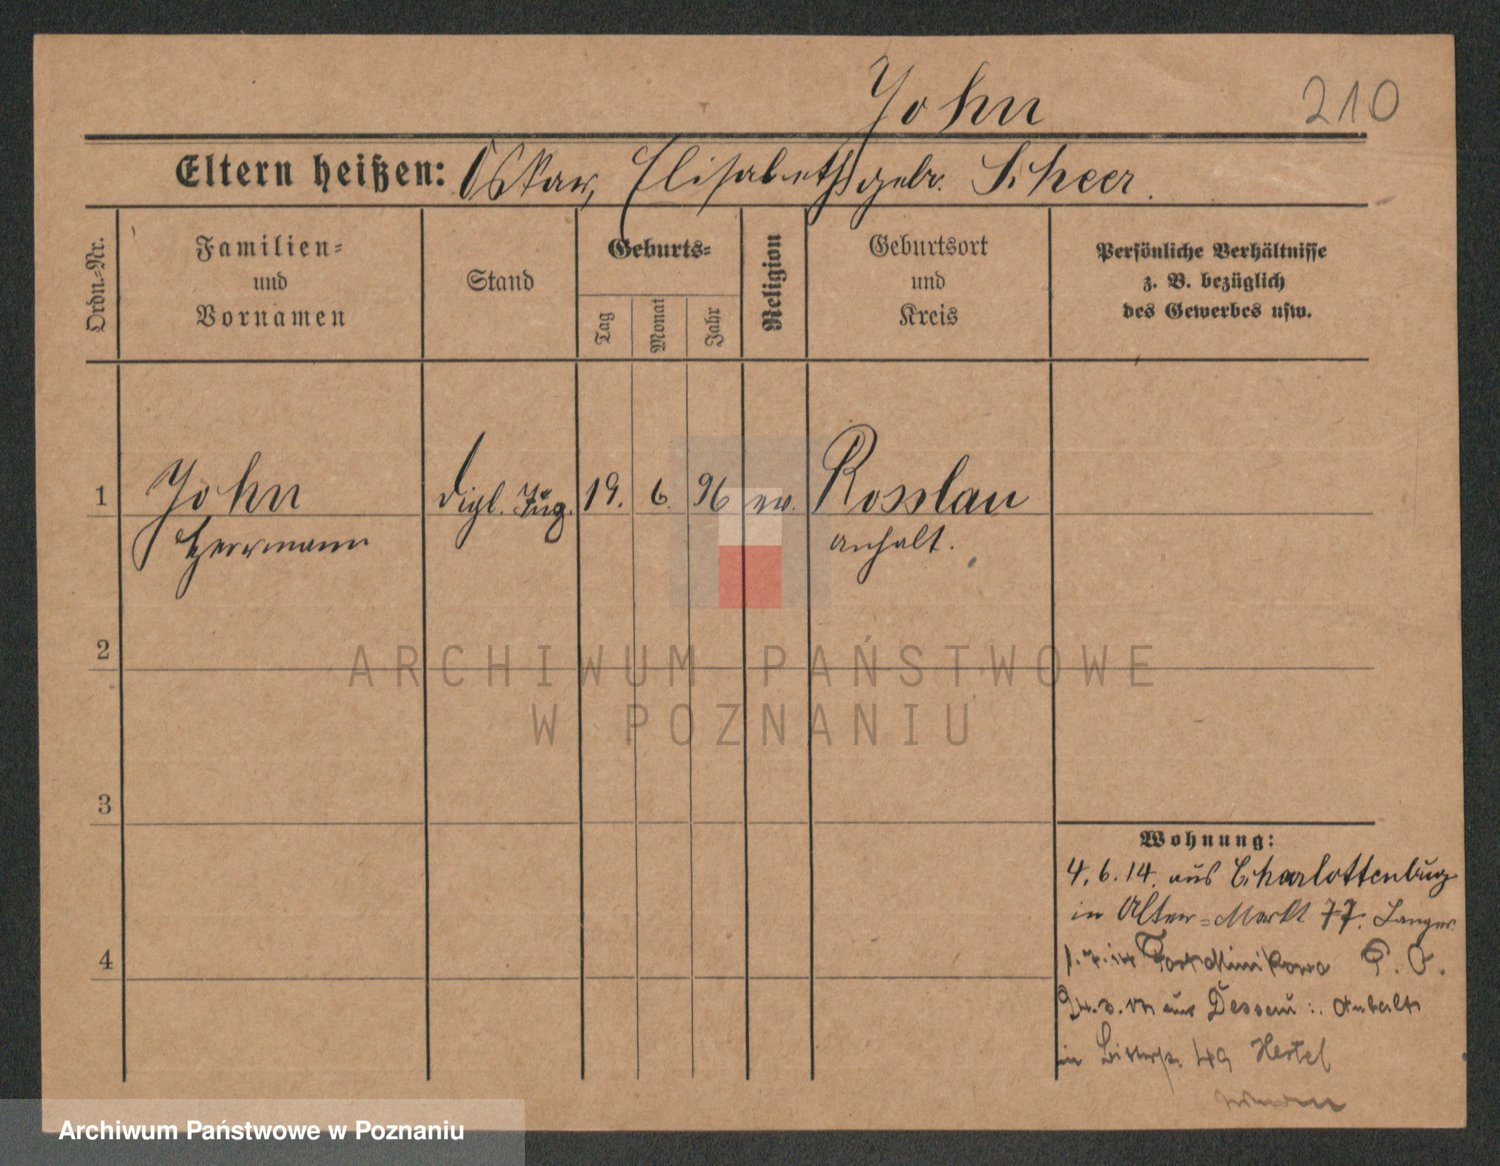 John
210
Eltern heißen: Oskar, Elisabeth gebr. Scheer.
Ordn.=Nr.
Familien=
und
Vornamen
Stand
Geburts=
Tag
Monat
Jahr
Religion
Geburtsort
und
Kreis
Persönliche Verhältnisse
z. B. bezüglich
des Gewerbes usw.
1 John dipl. Ing. 19. 6. 96 ev. Rosslau
Herrmann Anhalt.
2
3
4
Wohnung:
4. 6. 14. aus Charlottenburg
in Alter=Markt 77. Langer
Fort Minikowo P. O.
aus Dessau i. Anhalt
in 49 Hertel
ARCHIWUM PAŃSTWOWE
W POZNANIU
Archiwum Państwowe w Poznaniu